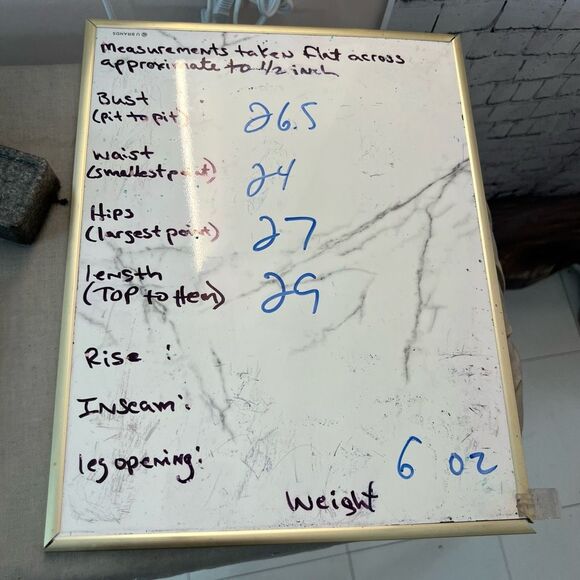 U BRANDS
Measurements taken flat across
approximate to 1/2 inch
Bust
(pit to pit)
26.5
waist
(smallest point)
24
Hips
(largest point)
27
length
(TOP to Hem)
29
Rise :
Inseam:
leg opening:
6 oz
Weight